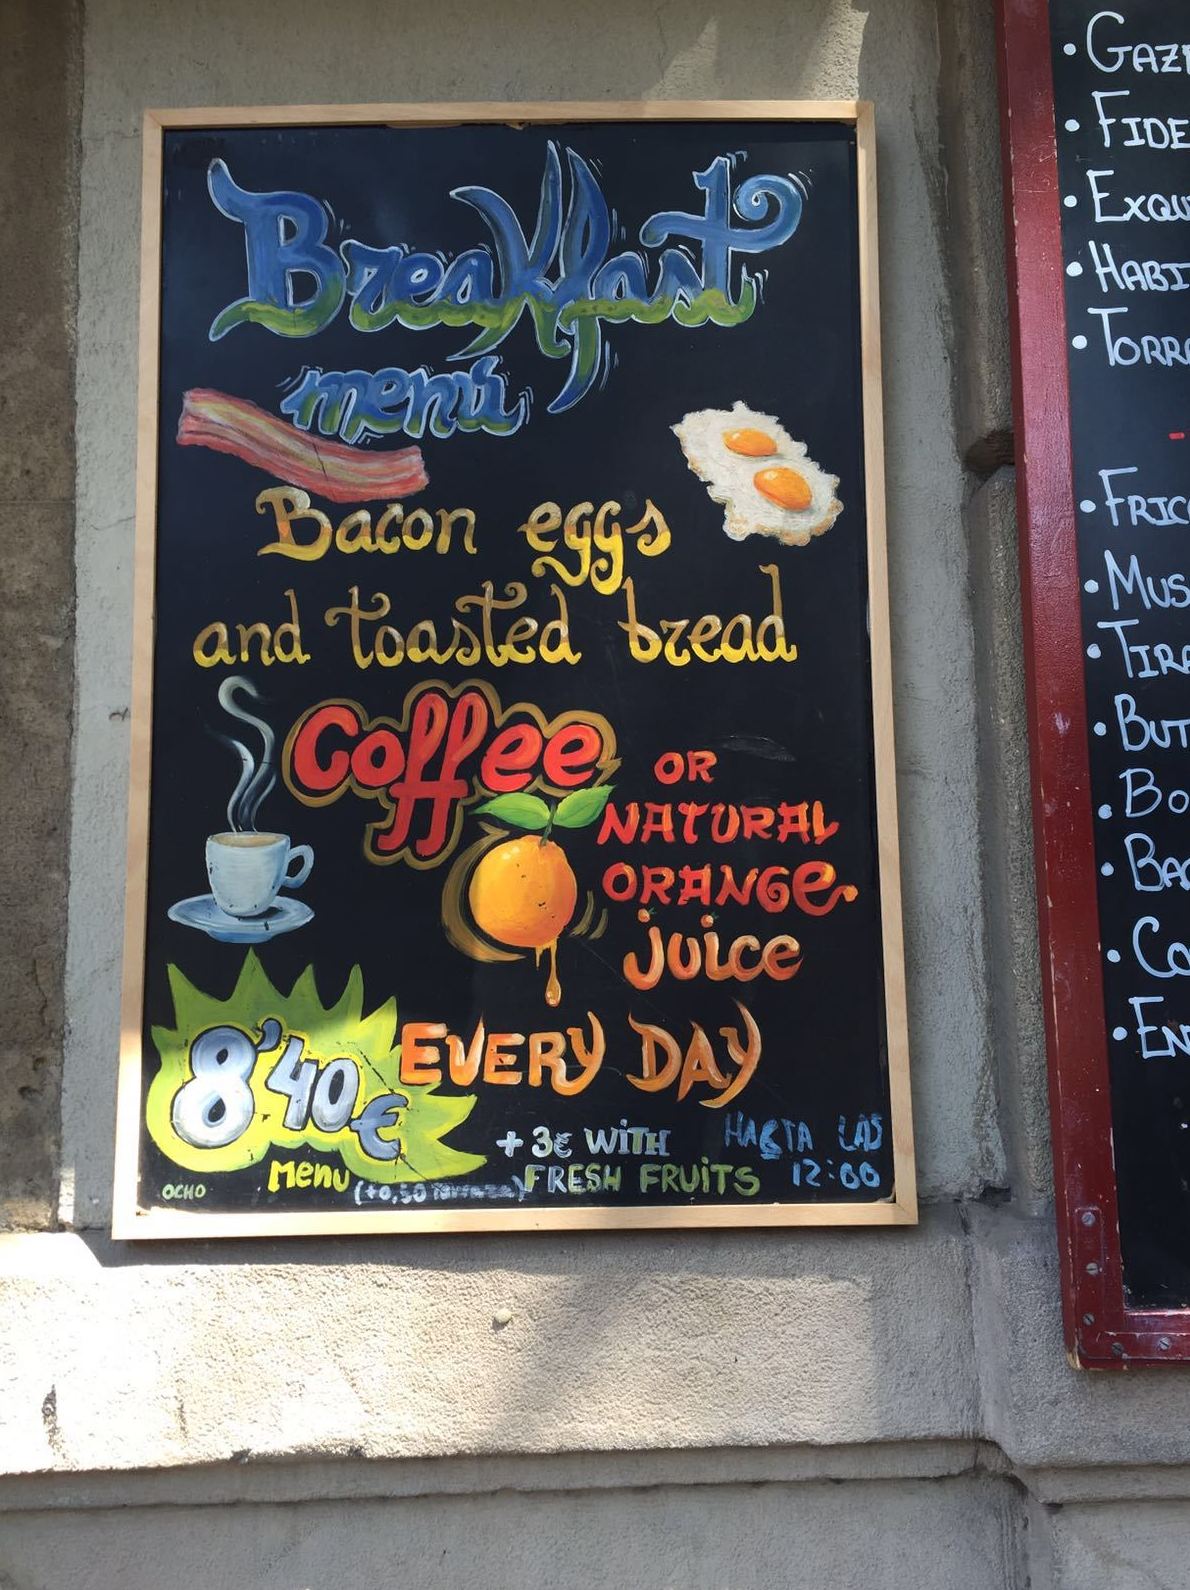 Breakfast
menú
Bacon eggs
and toasted bread
Coffee OR
NATURAL
ORANGE
juice
8'40€ EVERY DAY
+ 3€ WITH
FRESH FRUITS
HASTA LAS
12:00
Menu
(+0,50 Terraza)
OCHO
• GAZP
• FIDE
• EXQU
• HABI
• TORR
• FRIC
• MUS
• TIRA
• BUT
• BO
• BAC
• CO
• EN